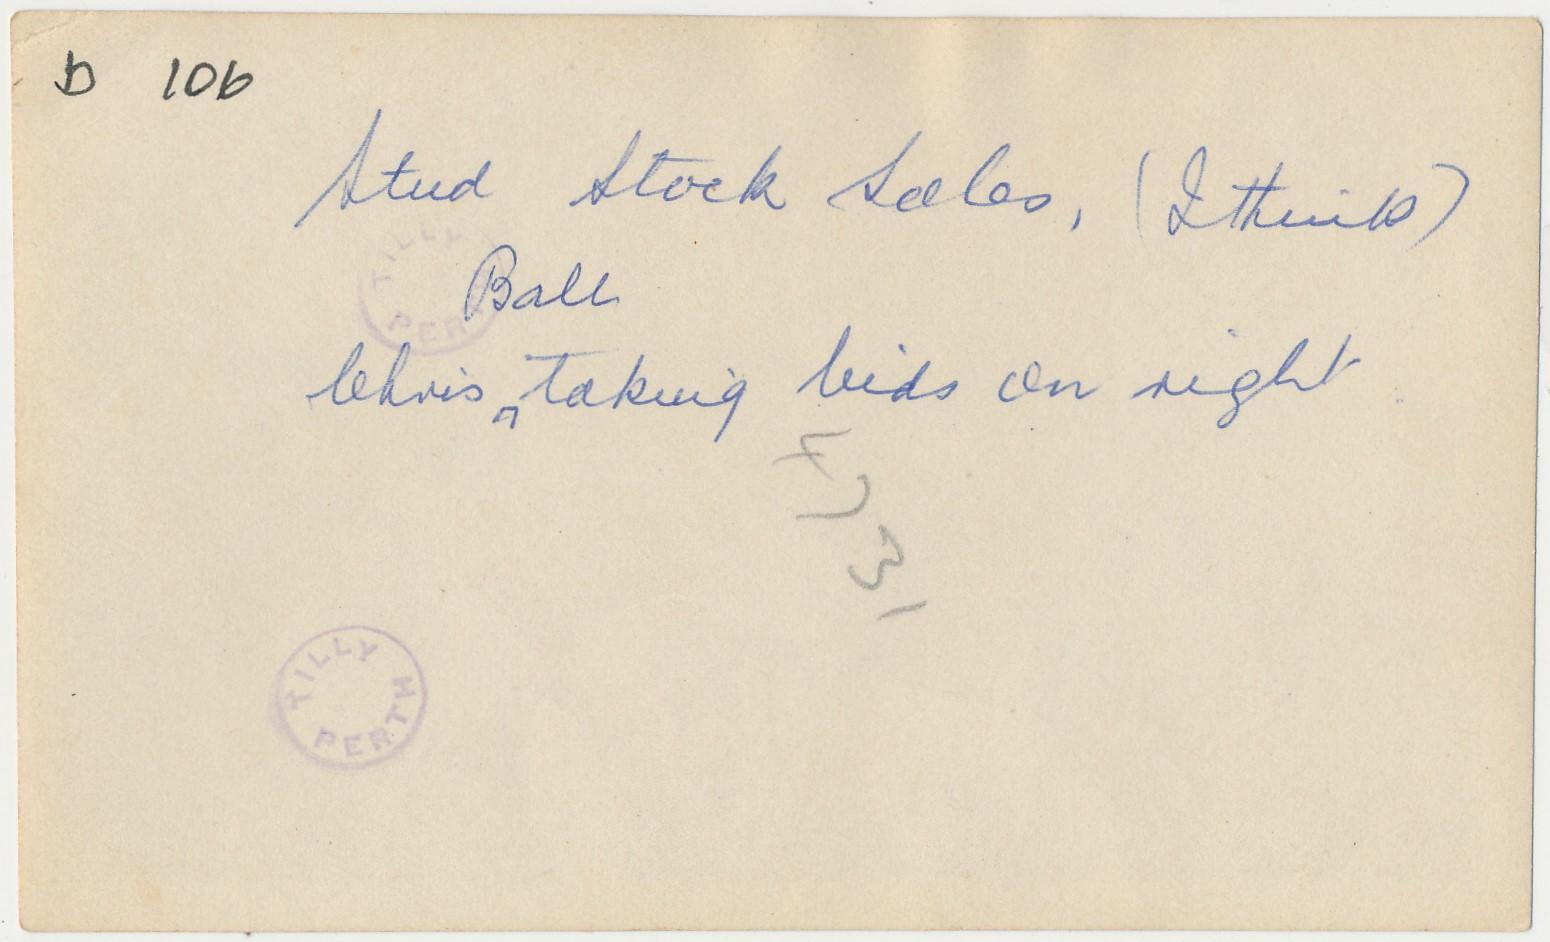 D 106
Stud Stock Sales, (I think)
Ball
Chris ^ taking bids on right
TILLY
PERTH
TILLY
PERTH